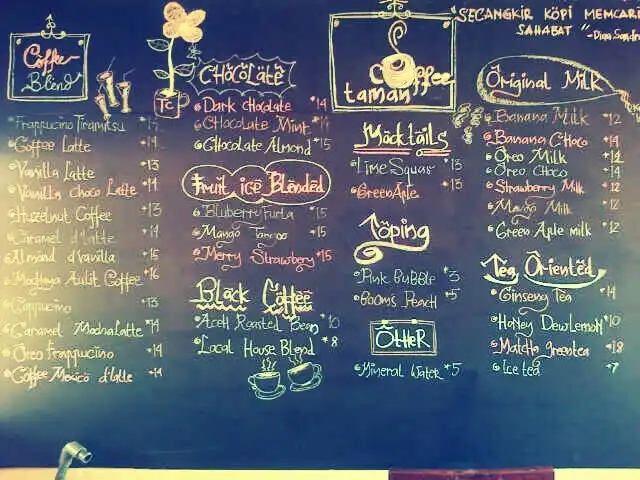 "SECANGKIR KOPI MEMCARI
SAHABAT"
Coffee
Blend
Frappucino Tiramitsu
Coffee Latte *14
Vanilla Latte *13
Vanilla choco Latte *14
Hazelnut Coffee *13
Caramel d'latte *14
Almond d'vanilla *15
Coffee *16
Cappucino *13
Caramel Mochalatte *14
Oreo Frappucino *14
Coffee Mexico d'latte *14
Tc
CHOCOLATE
Dark chocolate *14
CHocolate Mint
CHocolate Almond *15
Fruit ice Blended
Bluberry Furla *15
Mango Tangoo *15
Merry Strawbery *15
Black Coffee
Aceh Roasted Bean *10
Local House Blend *8
Coffee
taman
Mocktails
Lime Squas *13
Green Aple *13
Toping
Pink Bubble *3
Booms Peach *5
OtHeR
Mineral Water *5
Original Milk
Banana Milk *12
Banana Choco *14
Oreo Milk
Oreo Choco *14
Strawberry Milk *12
Mango Milk *12
Green Aple milk *12
Tea Oriented
Ginseng Tea *14
Honey Dew Lemon *10
Matcha greentea *18
Ice tea *7